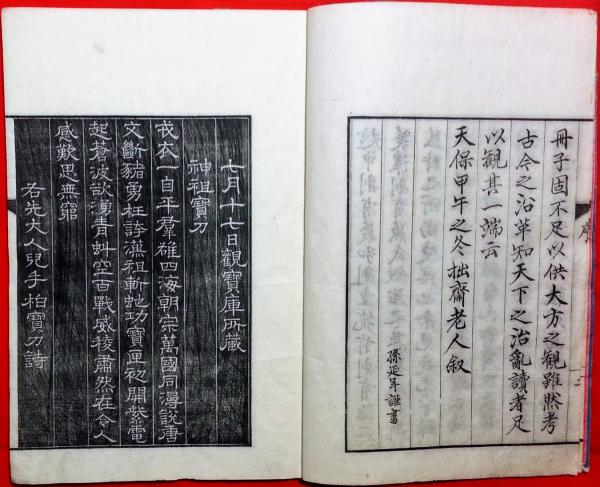 冊子固不足以供大方之觀雖然考
古今之沿革知天下之治亂讀者足
以觀其一端云
天保甲午之冬拙齋老人叙
孫延年謹書
七月十七日觀寶庫所藏
神祖寶刀
戎衣一自平羣雄四海朝宗萬國同漫說唐
文斷豬勇枉誇漢祖斬虵功寶匣初開紫電
起蒼波欲湧青虯空百戰威稜肅然在令人
感歎思無窮
右先大人兒手柏寶刀詩